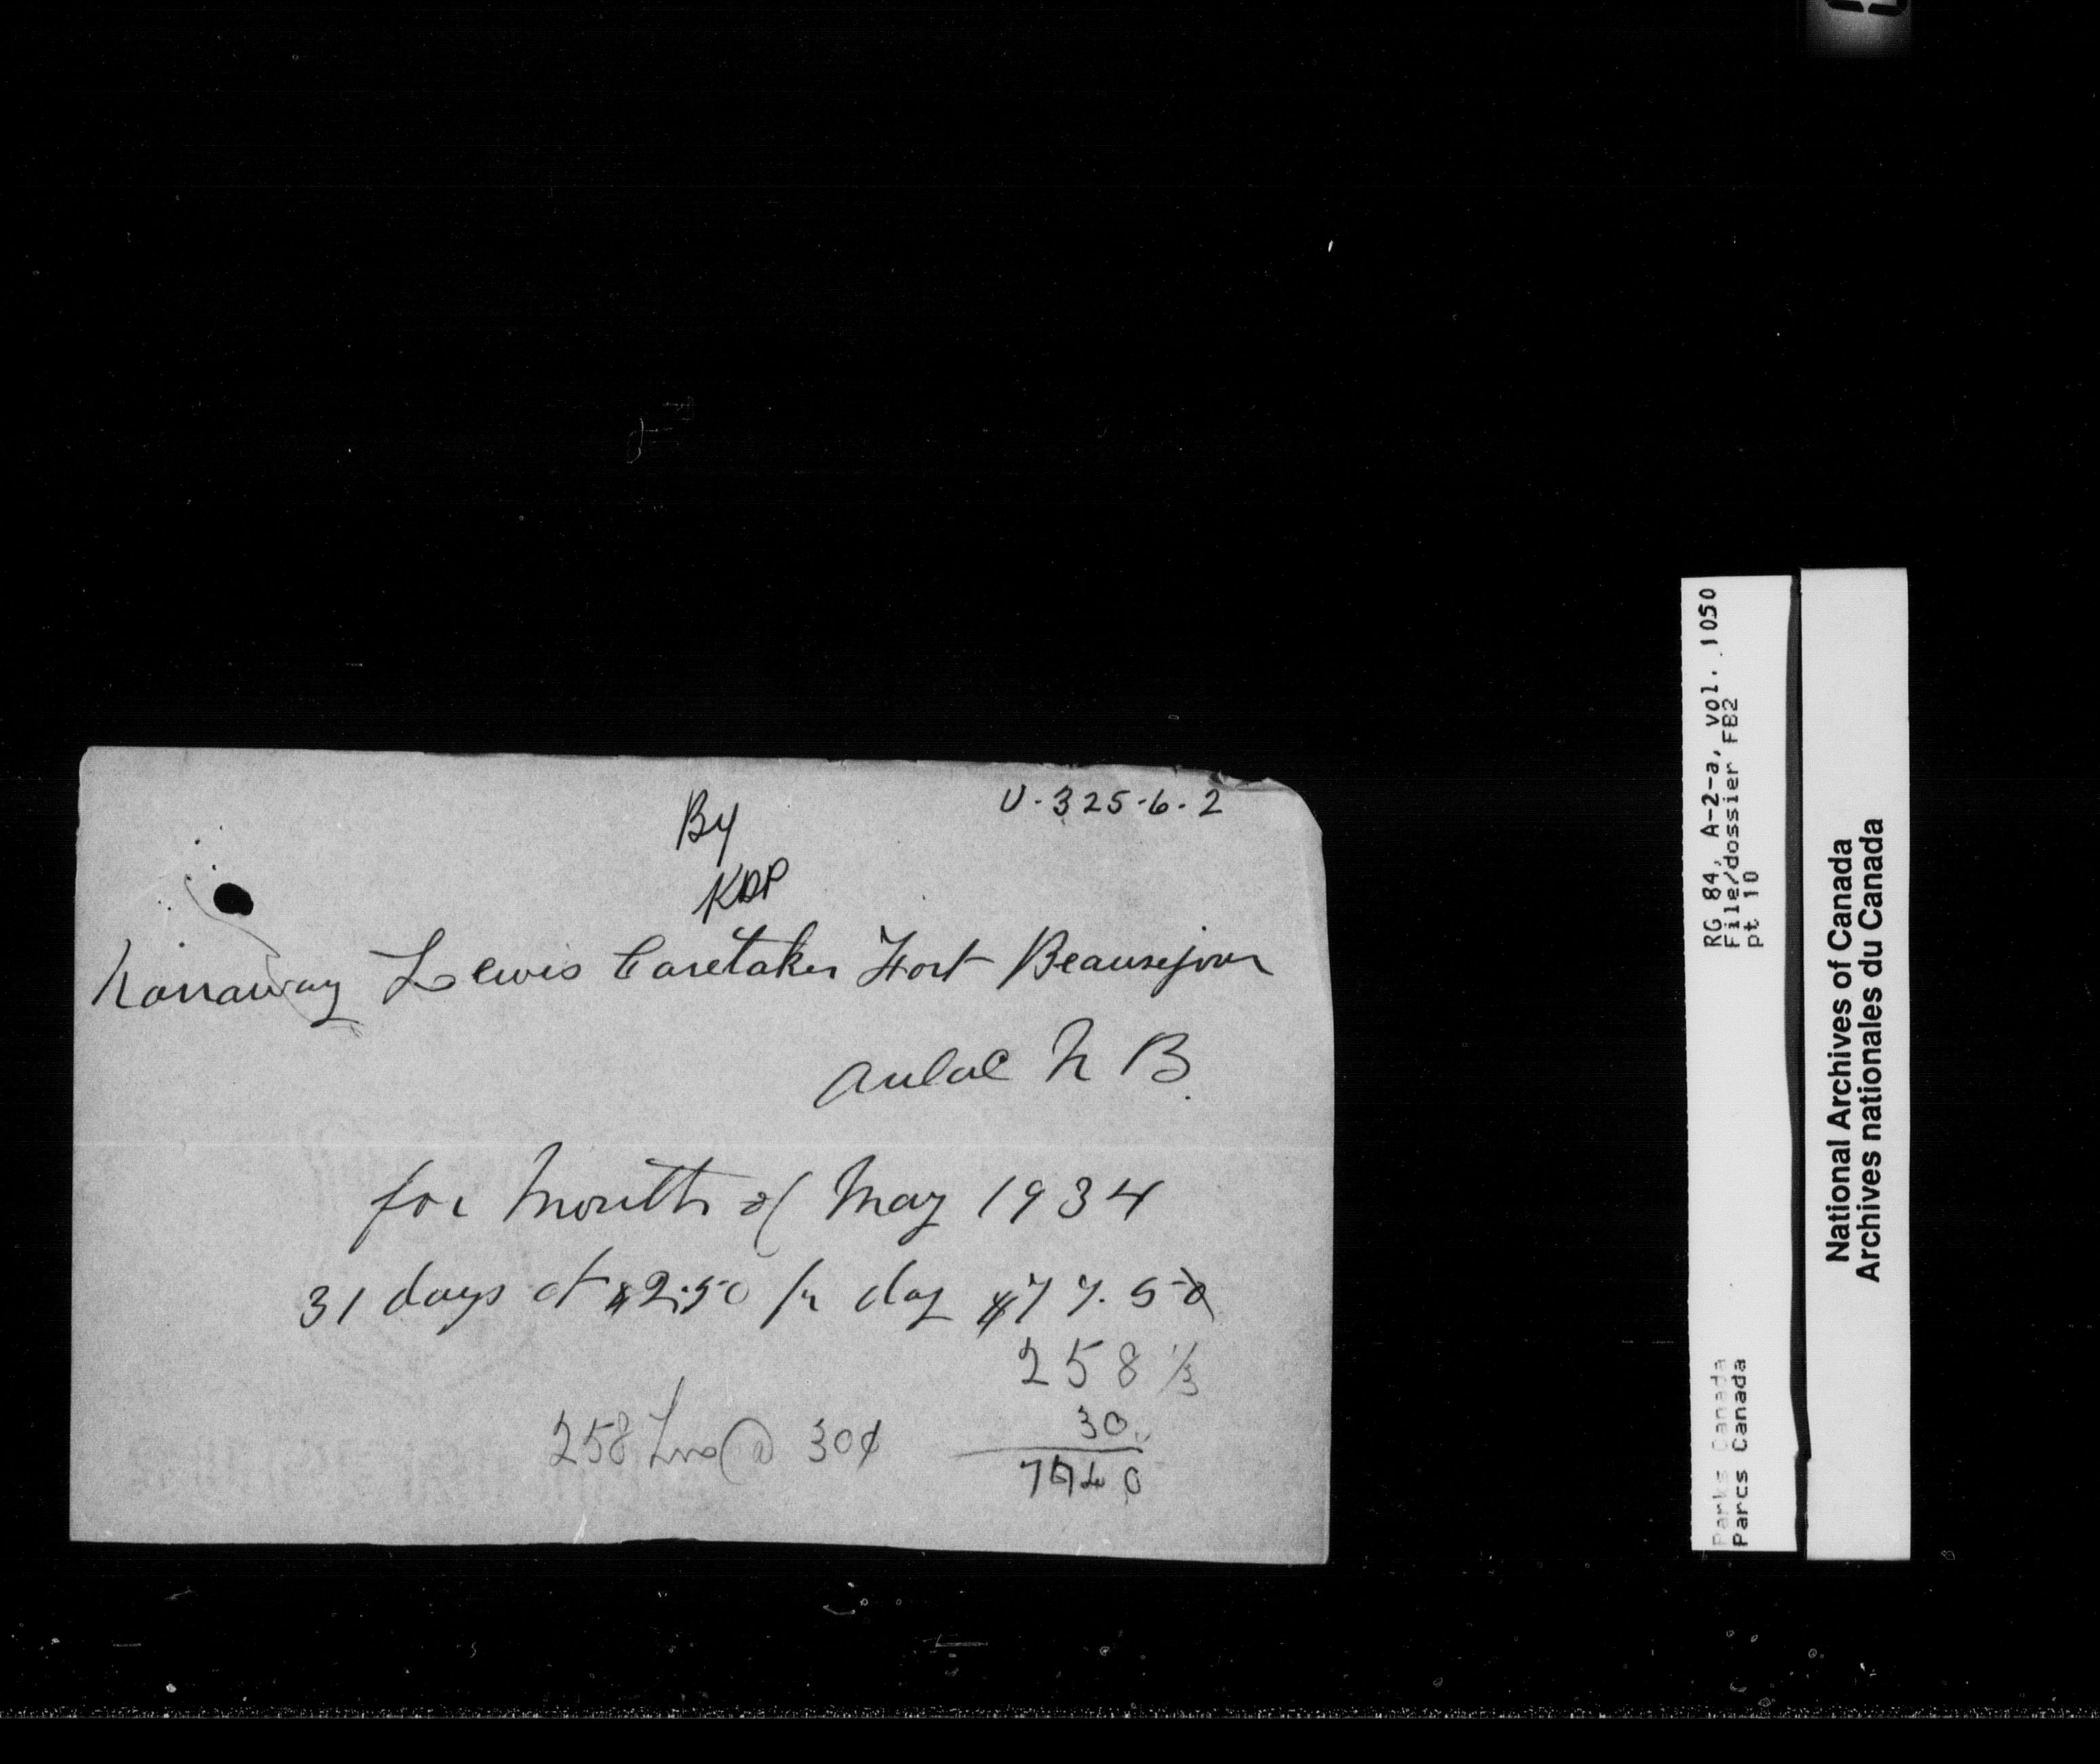 U-325-6-2
By
KDP
Lewis Caretaker Fort Beausejour
Aulac N B.
for Month of May 1934
31 days at $2.50 pr day $77.50
258 1/3
258 hrs @ 30¢ 30
7740
RG 84, A-2-a, vol. 1050
File/dossier FB2
pt 10
Parks Canada
Parcs Canada
National Archives of Canada
Archives nationales du Canada